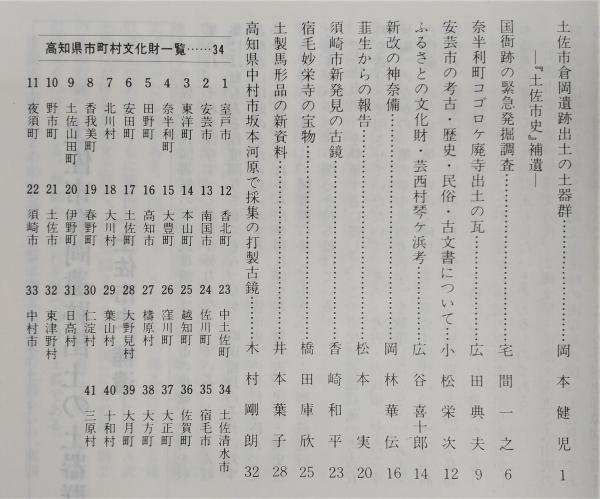 土佐市倉岡遺跡出土の土器群……………………岡本健児 1
―『土佐市史』補遺―
国衙跡の緊急発掘調査……………………宅間一之 6
奈半利町コゴロケ廃寺出土の瓦……………………広田典夫 9
安芸市の考古・歴史・民俗・古文書について……………小松栄次 12
ふるさとの文化財・芸西村琴ケ浜考……………広谷喜十郎 14
新改の神奈備……………………岡林華伝 16
韮生からの報告……………………松本実 20
須崎市新発見の古鏡……………………香崎和平 23
宿毛妙栄寺の宝物……………………橋田庫欣 25
土製馬形品の新資料……………………井本葉子 28
高知県中村市坂本河原で採集の打製古鏡…………木村剛朗 32
高知県市町村文化財一覧……34
1 室戸市
2 安芸市
3 東洋町
4 奈半利町
5 田野町
6 安田町
7 北川村
8 香我美町
9 土佐山田町
10 野市町
11 夜須町
12 香北町
13 南国市
14 本山町
15 大豊町
16 高知市
17 土佐町
18 大川村
19 春野町
20 伊野町
21 土佐市
22 須崎市
23 中土佐町
24 佐川町
25 越知町
26 窪川町
27 檮原村
28 大野見村
29 葉山村
30 仁淀村
31 日高村
32 東津野村
33 中村市
34 土佐清水市
35 宿毛市
36 佐賀町
37 大正町
38 大方町
39 大月町
40 十和村
41 三原村